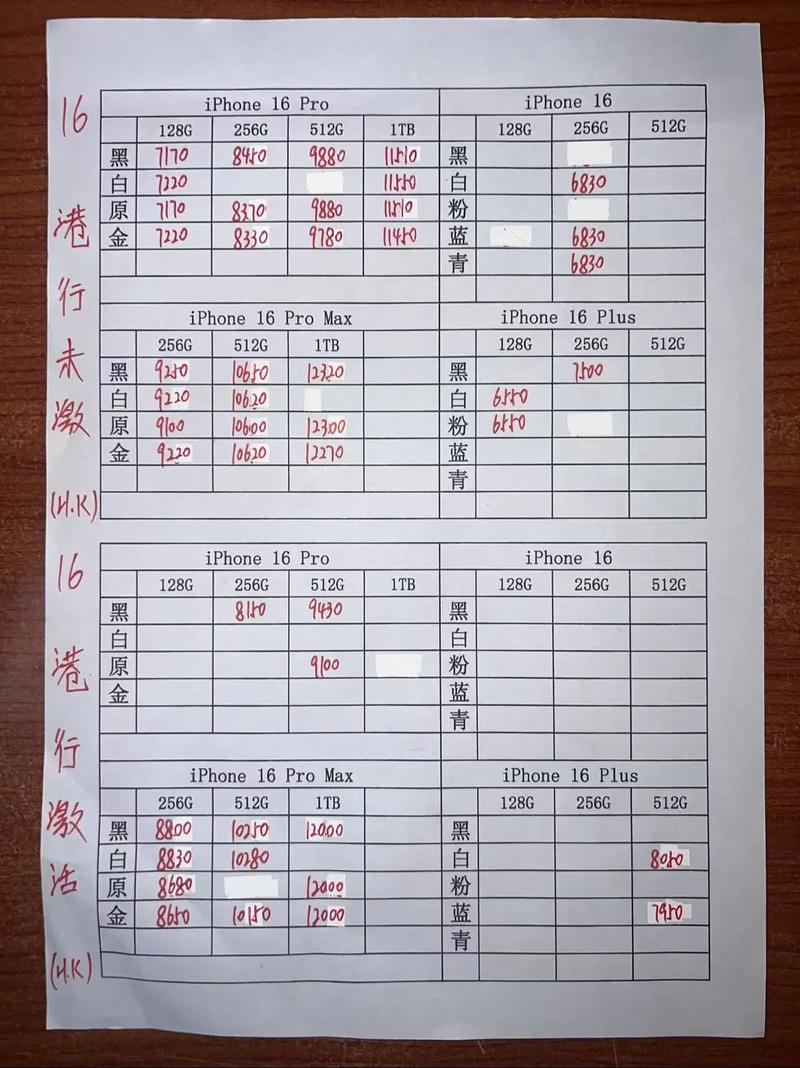 16 港行未激 (H.K)
iPhone 16 Pro
128G 256G 512G 1TB
黑 7170 8450 9880 11510
白 7220 11550
原 7170 8370 9880 11510
金 7220 8330 9780 11450
iPhone 16
128G 256G 512G
黑
白 6830
粉
蓝 6830
青 6830
iPhone 16 Pro Max
256G 512G 1TB
黑 9250 10650 12320
白 9220 10620
原 9100 10600 12300
金 9220 10620 12270
iPhone 16 Plus
128G 256G 512G
黑 7500
白 6550
粉 6550
蓝
青
16 港行激活 (H.K)
iPhone 16 Pro
128G 256G 512G 1TB
黑 8150 9430
白
原 9100
金
iPhone 16
128G 256G 512G
黑
白
粉
蓝
青
iPhone 16 Pro Max
256G 512G 1TB
黑 8800 10250 12000
白 8830 10280
原 8680 12000
金 8650 10150 12000
iPhone 16 Plus
128G 256G 512G
黑
白 8050
粉
蓝 7950
青